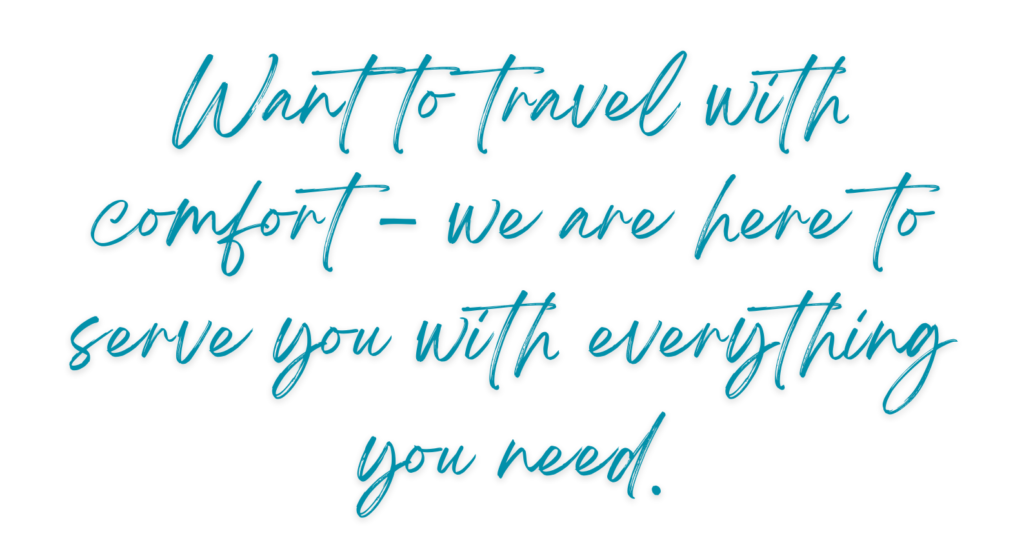 Want to travel with
comfort – we are here to
serve you with everything
you need.